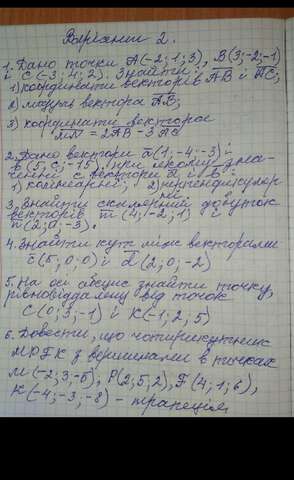 Варіант 2.
1. Дано точки A(-2; 1; 3), B(3; -2; -1)
і C(-3; 4; 2). Знайти:
1) координати векторів AB і AC;
2) модуль вектора AC;
3) координати вектора
MN = 2AB - 3AC
2. Дано вектори a(1; -4; -3) і
b(5; c; -15). При якому зна-
ченні c вектори a і b:
1) колінеарні; 2) перпендикуляр
ні
3. Знайти скалярний добуток
векторів m(4; -2; 1) і
n(2; a; -3).
4. Знайти кут між векторами
c(5; 0; 0) і d(2; 0; -2)
5. На осі абсцис знайти точку,
рівновіддалену від точок
C(0; 3; -1) і K(-1; 2; 5)
6. Довести, що чотирикутник
MPFK з вершинами в точках
M(-2; 3; -5), P(2; 5; 2), F(4; 1; 6),
K(-4; -3; -8) - трапеція.